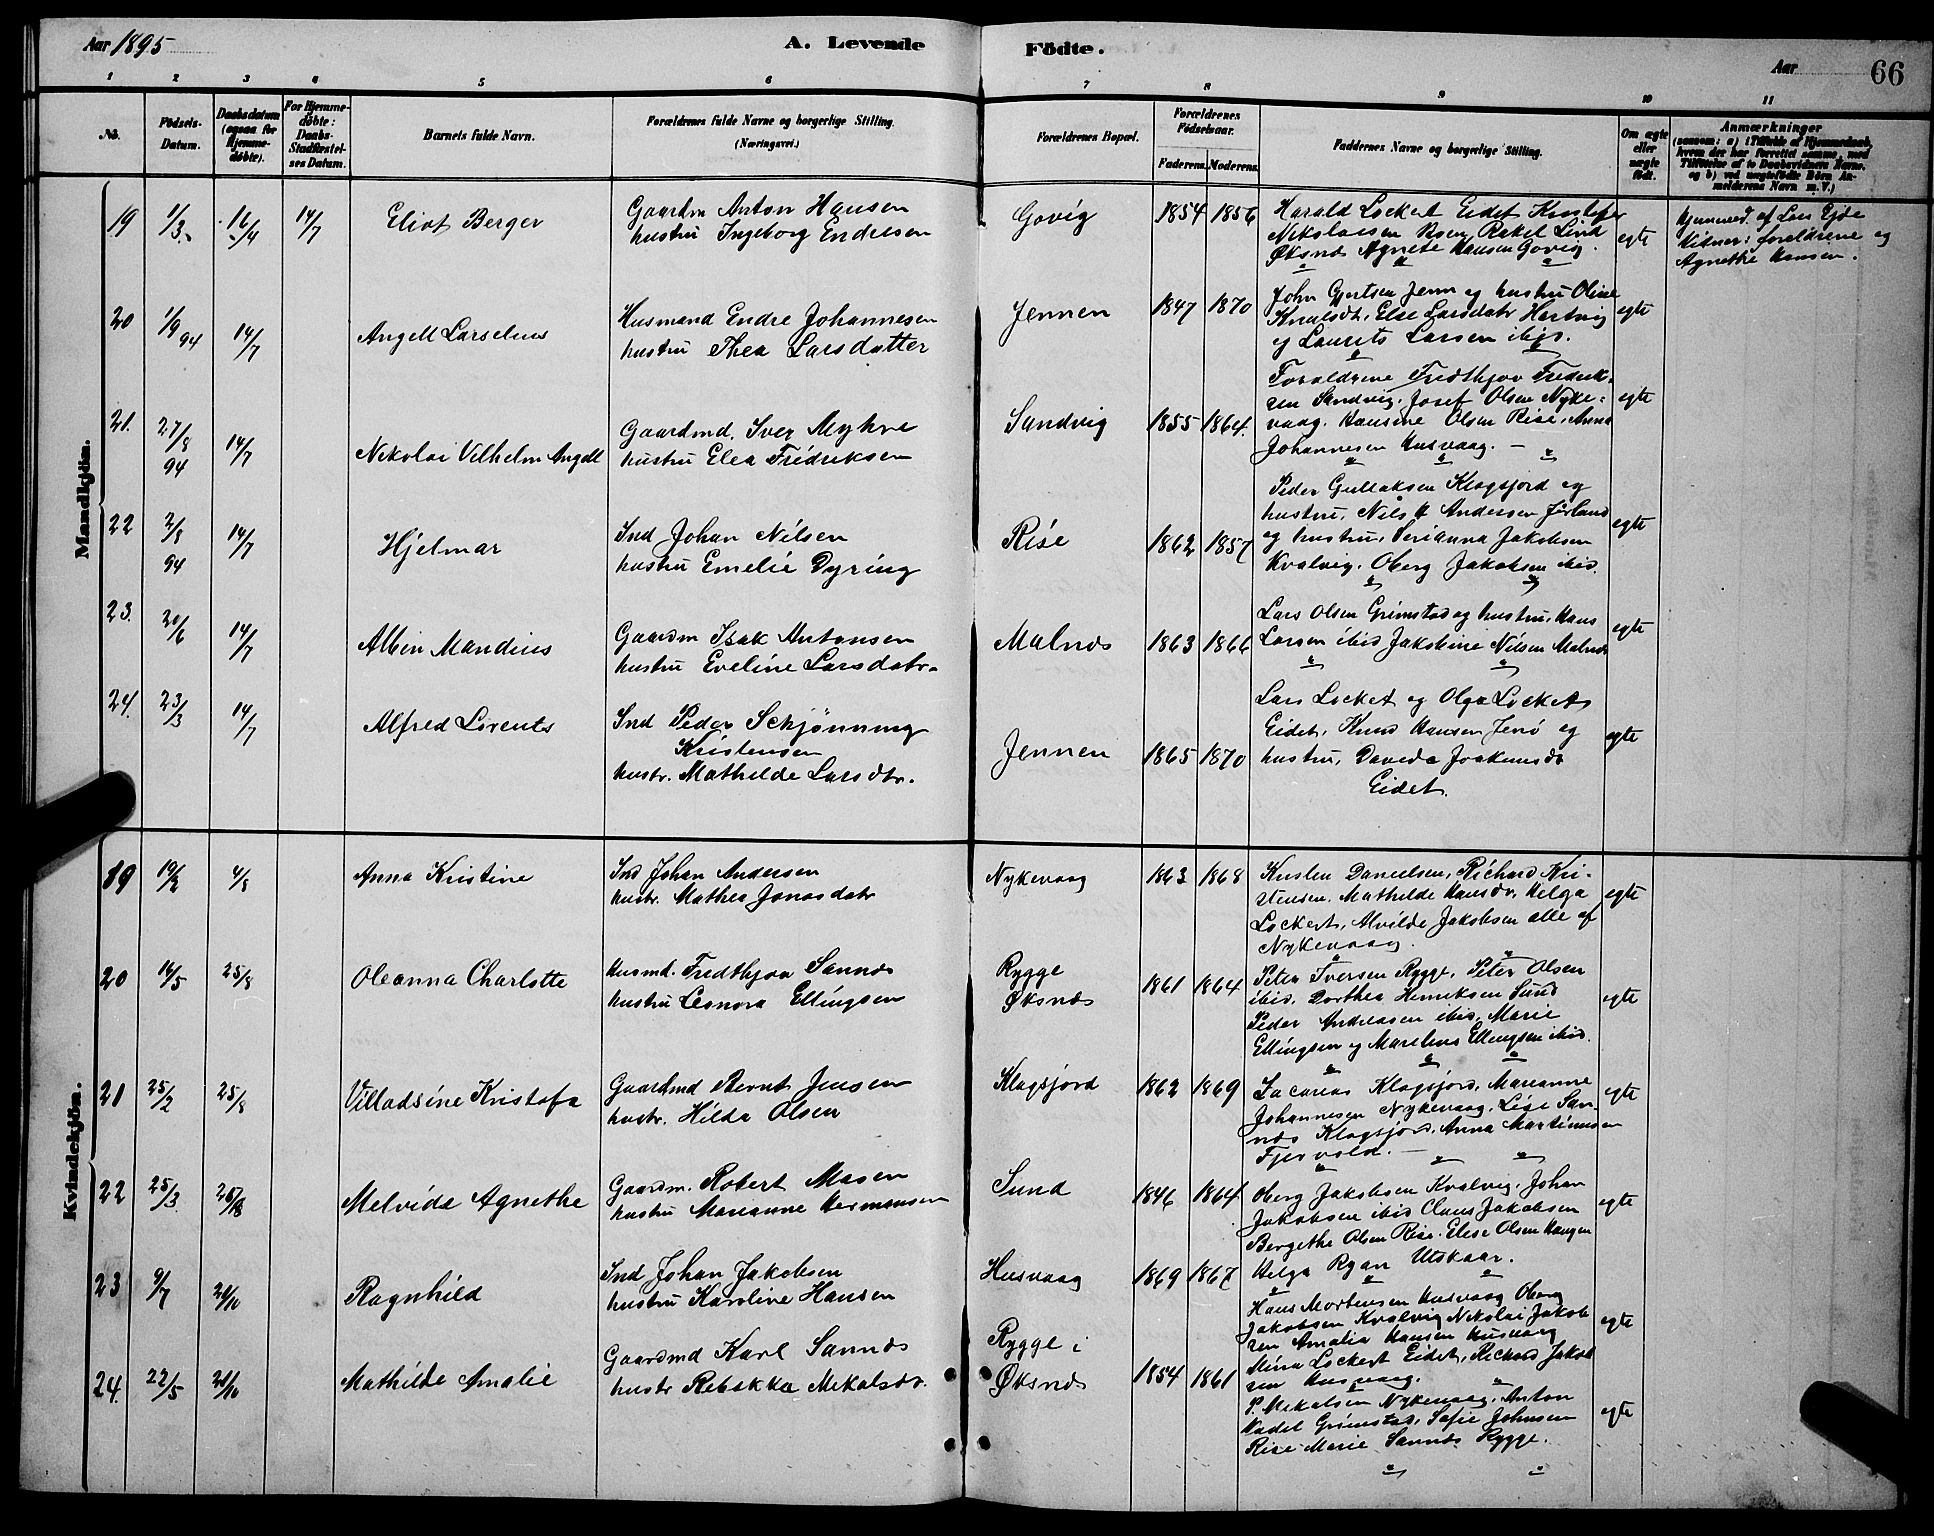 Aar 1895
A. Levende
Födte.
Aar
66
1 2 3 4 5 6 7 8 9 10 11
No.
Födsels-
Datum.
Daabsdatum
(ogsaa for
Hjemme-
döbte).
For Hjemme-
döbte:
Daabs-
Stadfæstel-
ses Datum.
Barnets fulde Navn.
Forældrenes fulde Navne og borgerlige Stilling.
(Næringsvei.)
Forældrenes Bopæl.
Forældrenes
Födselsaar.
Faderens. Moderens.
Faddernes Navne og borgerlige Stilling.
Om ægte
eller
uægte
födt.
Anmærkninger
(saasom: a) i Tilfælde af Hjemmedaab,
hvem der har forrettet samme, med
Tilföielse af to Daabsvidners Navne,
og b) ved uægtefödte Börn An-
melderens Navn m. V.)
Mandkjön.
19 1/3 16/4 14/7 Eliot Berger
Gaardm Anton Hansen
hustru Ingeborg Endresen
Govig 1854 1856
Harald Lockert Eidet
Nikolaisen Rakel Lind
Øksnes Agnete Hansen Govig.
egte
hjemmed. af Lars Ejde
Vidner: foreldrene og
Agnethe Hansen.
20 1/9 94 14/7 Angell Larselius
Husmand Endre Johannesen
hustru Thea Larsdatter
Jennen 1847 1870
John Gjertsen Jenn og hustru Oline
Knutsdt, Else Larsdatr Hartvig
og Laurits Larsen ibds.
egte
21. 27/8 94 14/7 Nikolai Vilhelm Angell
Gaardmd. Iver Myhre
hustru Elea Fredriksen
Sandvig 1855 1864.
Foreldrene Fredthjov Fredrik-
sen Sandvig, Josef Olsen Nyke-
vaag. Hansine Olsen Rise, Anna
Johannesen Husvaag. —
egte
22 2/8 94 14/7 Hjelmar
Ind Johan Nilsen
hustru Emelie Dyring
Rise 1862 1857
Peder Gullaksen Klogsjord og
hustru, Nils Andersen Jørland
og hustru, Serianna Jakobsen
Kvalvig. Oberg Jakobsen ibid.
egte
23. 20/6 14/7 Albin Mandius
Gaardm Isak Antonsen
hustru Eveline Larsdatr
Malnes 1863 1866
Lars Olsen Grimstad og hustru, Hans
Larsen ibid Jakobine Nilsen Malnes
egte
24. 23/3 14/7 Alfred Lorents
Ind Peder Schjønning
Kristensen
hustr. Mathilde Larsdtr.
Jennen 1865 1870
Lars Lockert og Olga Lockert
Eidet, Knud Hansen Jenø og
hustru, Daveda Joakimsdt
Eidet.
egte
Kvindekjön.
19 19/2 4/8 Anna Kristine
Ind Johan Andersen
hustr. Mathea Jonasdatr
Nykevaag 1863 1868
Karsten Danielsen, Richard Kri-
stensen. Mathilde Hansdtr. Helga
Lockert, Alvilde Jakobsen alle af
Nykevaag.
egte
20 14/5 25/8 Oleanna Charlotte
Husmd. Fredthjov Sannes
hustru Leonora Ellingsen
Rygge
Øksnes
1861 1864
Peter Iversen Rygge, Peter Olsen
ibid, Dorthea Henriksen Sund
Peder Andreasen ibid, Marie
Ellingsen og Marelius Ellingsen ibid.
egte
21 25/2 25/8 Villadsine Kristofa
Gaardmd Bernt Jensen
hustr. Hilda Olsen
Klogsjord 1862 1869
Zacarias Klogsjord, Marianne
Johannesen Nykevaag. Lise San-
nes Klogsjord, Anna Martinusen
Fjervold. —
egte
22 25/3 Melvida Agnethe
Gaardm. Robert Masen
hustru Marianne Hermansen
Sund 1846 1864
Oberg Jakobsen Kvalvig, Johan
Jakobsen ibid Claus Jakobsen
Bergethe Olsen Rise. Elise Olsen Haugen
Helga Ryan Utskaar.
egte
23 9/7 20/10 Ragnhild
Ind Johan Jakobsen
hustru Karoline Hansen
Husvaag 1869 1867
Hans Mortensen Husvaag Oberg
Jakobsen Kvalvig Nikolai Jakob
sen Amalia Hansen Husvaag
Mina Lockert Eidet, Richard Jakob
sen Husvaag.
egte
24. 22/5 20/10 Mathilde Amalie
Gaardmd Karl Sannes
hustr Rebekka Mikalsdr.
Rygge i
Øksnes
1854 1861
P. Mikalsen Nykevaag, Anton
Vadel Grimstad, Sofie Johnsen
Rise Marie Sannes Rygge.
egte